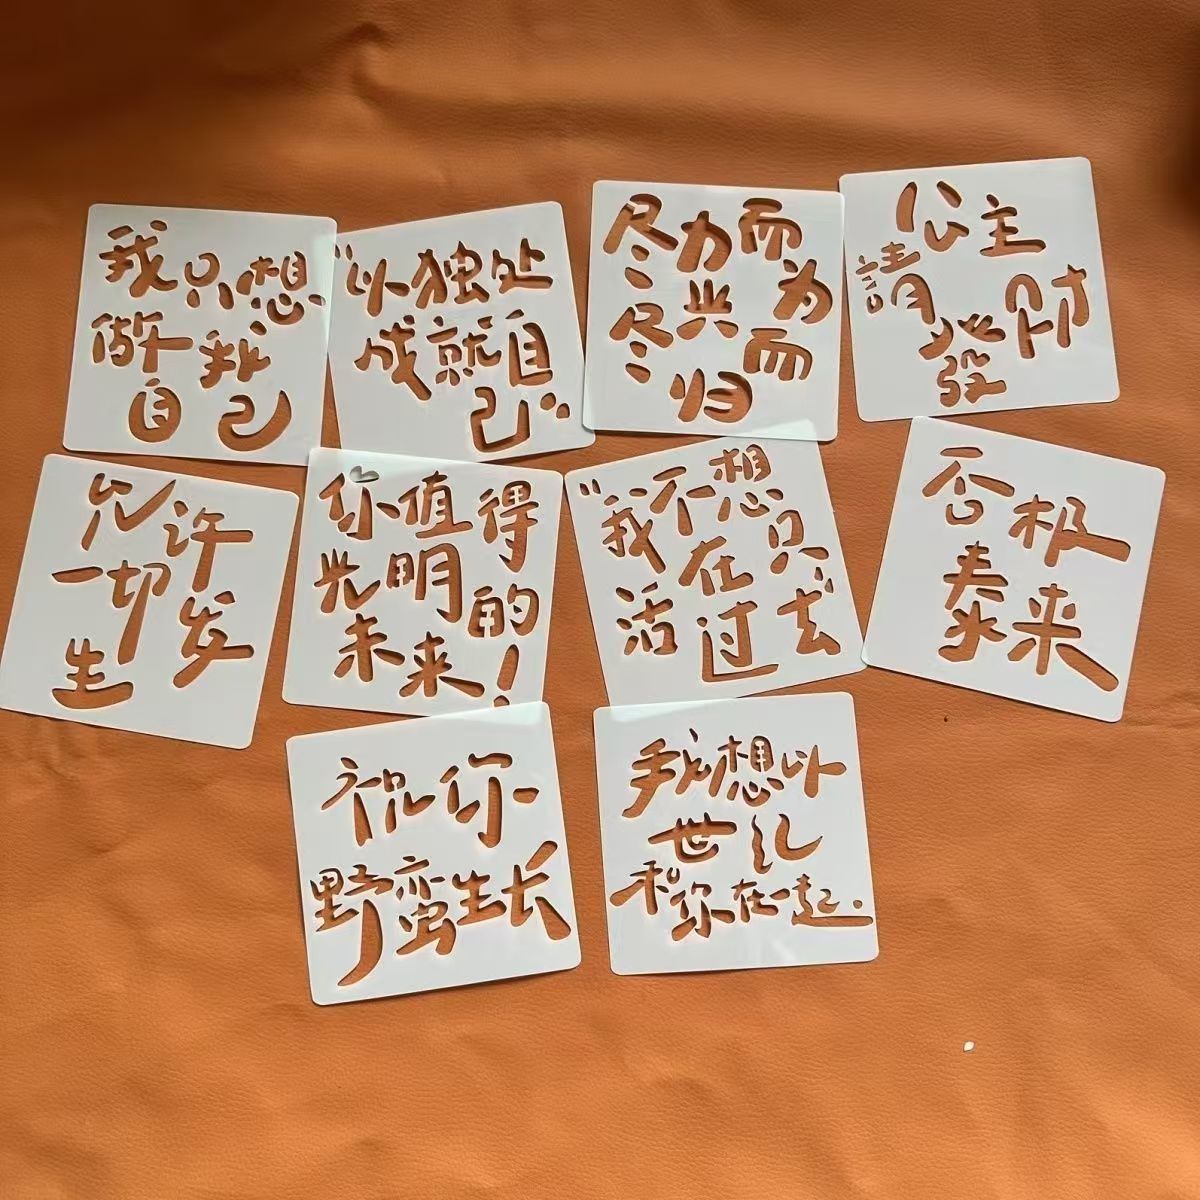 我只想
做我
自己
“以独处
成就自
己”
尽力而为
尽兴而归
公主
請發财
允许
一切发
生
你值得
光明的
未来！
“我不想只
活在过去”
否极
泰来
祝你
野蛮生长
我想以
世纪
和你在一起.